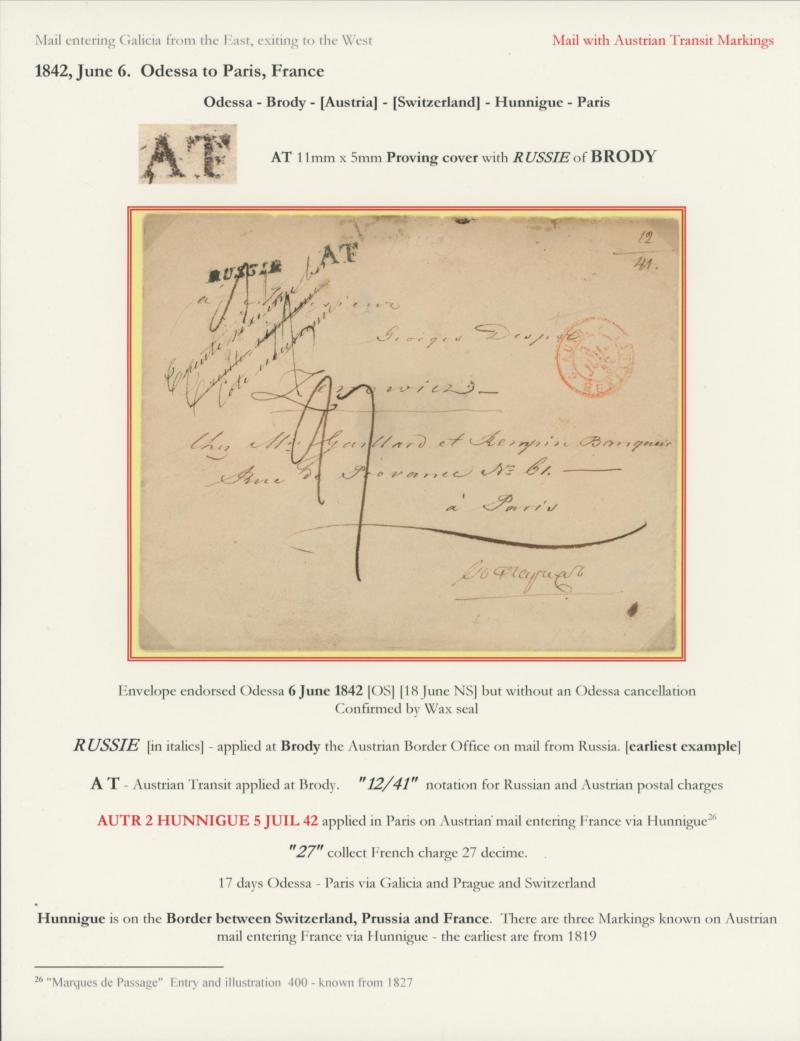 Mail entering Galicia from the East, exiting to the West
Mail with Austrian Transit Markings
1842, June 6. Odessa to Paris, France
Odessa - Brody - [Austria] - [Switzerland] - Hunnigue - Paris
AT
AT 11mm x 5mm Proving cover with RUSSIE of BRODY
RUSSIE AT
12
41.
à Monsieur
Georges Despot
Chez Mrs Gaillard et Rempin Banquier
Rue de Provance No 61.
à Paris
27
Envelope endorsed Odessa 6 June 1842 [OS] [18 June NS] but without an Odessa cancellation
Confirmed by Wax seal
RUSSIE [in italics] - applied at Brody the Austrian Border Office on mail from Russia. [earliest example]
A T - Austrian Transit applied at Brody. "12/41" notation for Russian and Austrian postal charges
AUTR 2 HUNNIGUE 5 JUIL 42 applied in Paris on Austrian mail entering France via Hunnigue26
"27" collect French charge 27 decime.
17 days Odessa - Paris via Galicia and Prague and Switzerland
Hunnigue is on the Border between Switzerland, Prussia and France. There are three Markings known on Austrian
mail entering France via Hunnigue - the earliest are from 1819
26 "Marques de Passage" Entry and illustration 400 - known from 1827